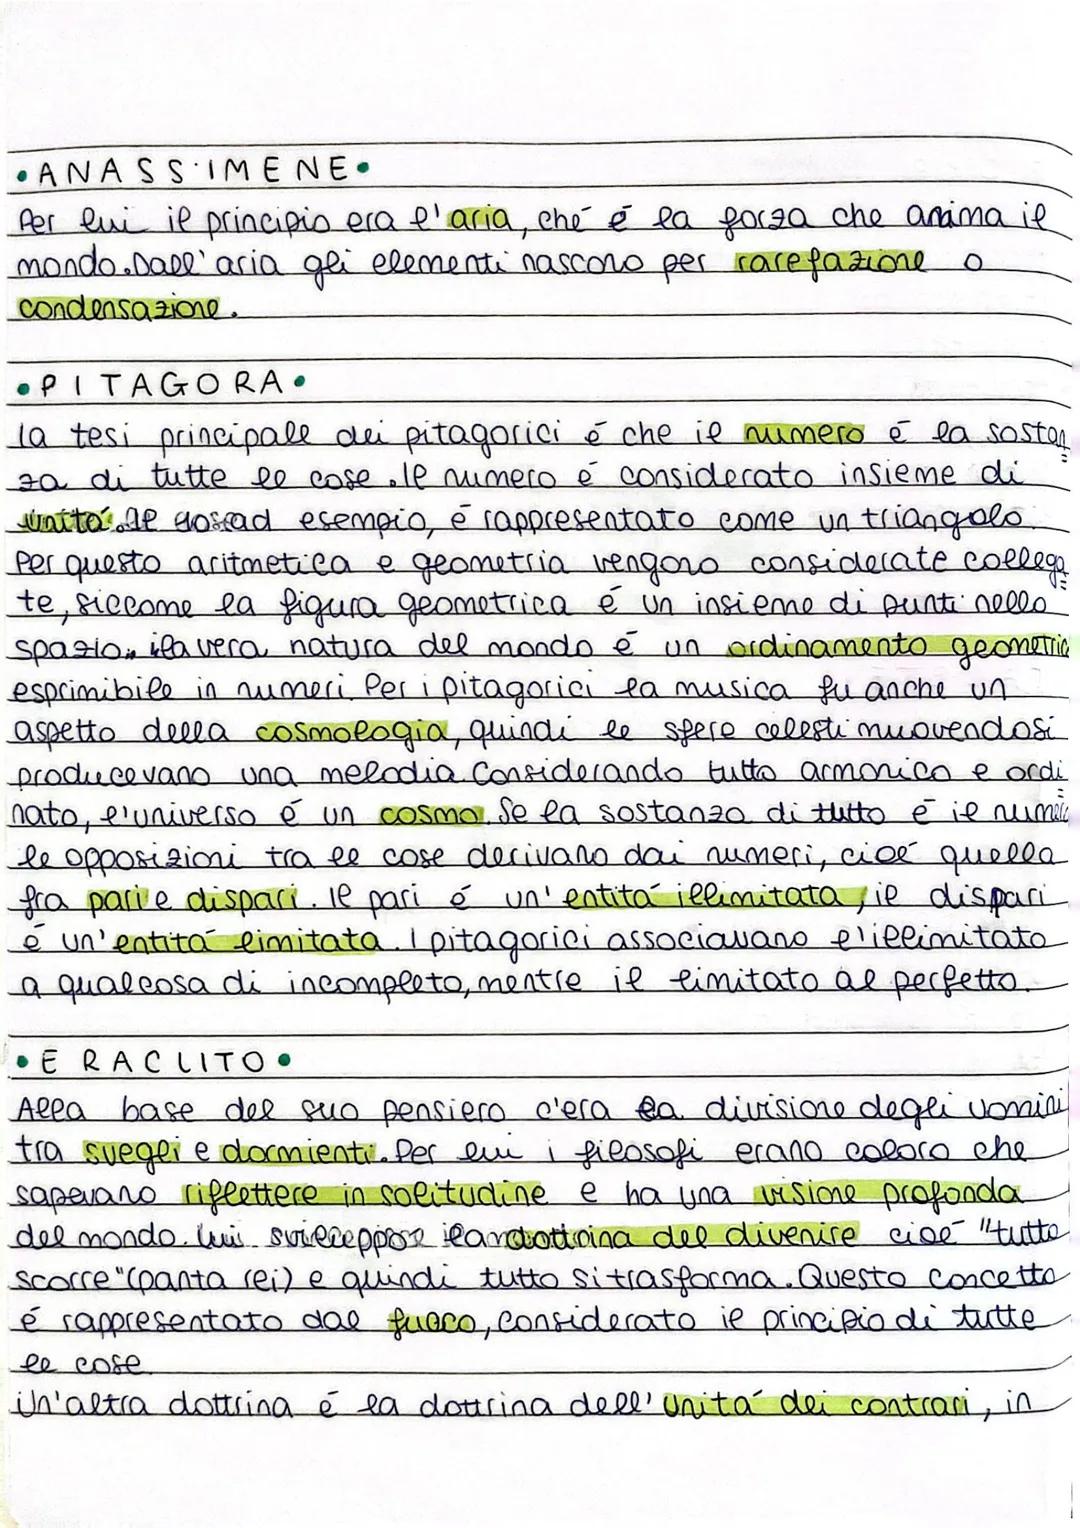 •ANASSIMENE•
Per lui il principio era l'aria, ché é la forza che anima il
mondo. Dall'aria gli elementi nascono per rarefazione o
condensazione.
•PITAGORA•
la tesi principale dei pitagorici é che il numero é la sostan
za di tutte le cose. Il numero é considerato insieme di
unitá. Il ad esempio, é rappresentato come un triangolo.
Per questo aritmetica e geometria vengono considerate collega
te, siccome la figura geometrica é un insieme di punti nello
spazio, la vera natura del mondo é un ordinamento geometric
esprimibile in numeri. Per i pitagorici la musica fu anche un
aspetto della cosmologia, quindi le sfere celesti muovendosi
producevano una melodia. Considerando tutto armonico e ordi
nato, l'universo é un cosmo. Se la sostanza di tutto é il numero
le opposizioni tra le cose derivano dai numeri, cioé quella
fra pari e dispari. Il pari é un'entitá illimitata, il dispari
é un'entitá limitata. I pitagorici associavano l'illimitato
a qualcosa di incompleto, mentre il limitato al perfetto.
•ERACLITO•
Alla base del suo pensiero c'era la divisione degli uomini
tra svegli e dormienti. Per lui i filosofi erano coloro che
sapevano riflettere in solitudine e ha una visione profonda
del mondo. Lui dottrina del divenire cioé "tutto
scorre" (panta rei) e quindi tutto si trasforma. Questo concetto
é rappresentato dal fuoco, considerato il principio di tutte
le cose.
Un'altra dottrina é la dottrina dell'unitá dei contrari, in